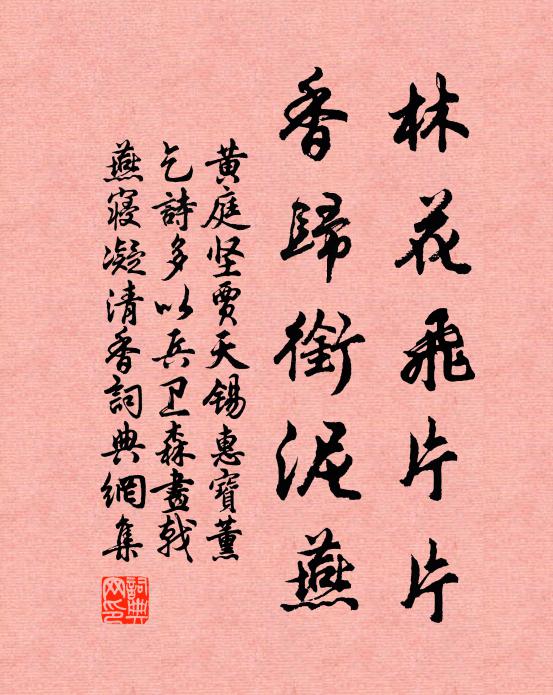 林花飛片片
香歸銜泥燕
黄庭坚賈天锡惠寶薰
乞詩多以兵卫森畫戟
燕寢凝清香詞典網集
詞典网印